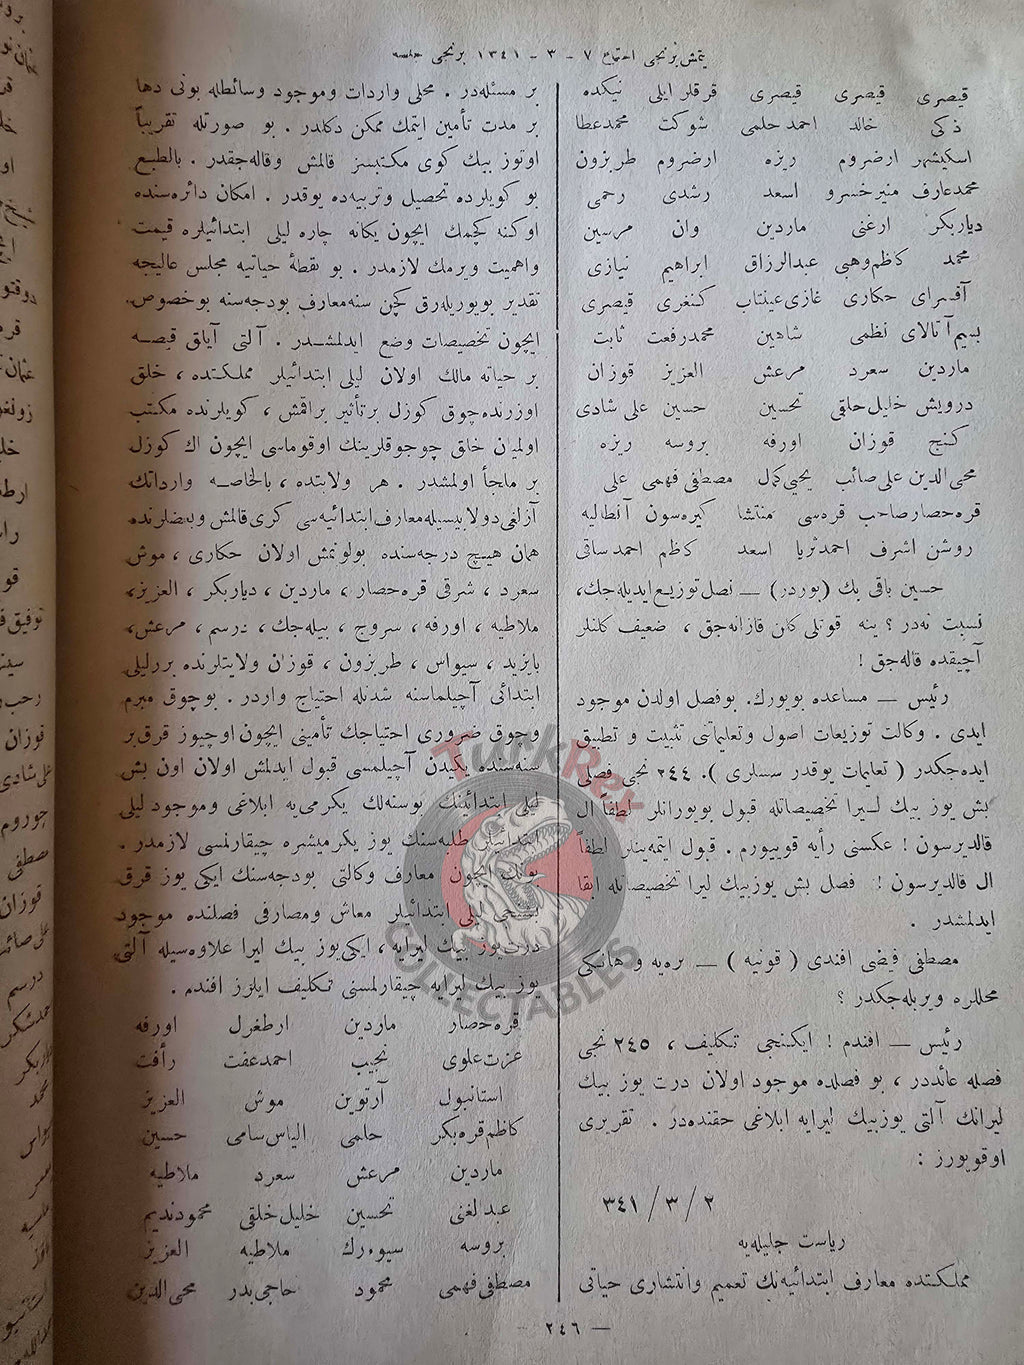 يتمش برنجى اجتماع ٧ - ٣ - ١٣٤١ برنجى جلسه
قيصرى قيصرى قيصرى قرقلرايلى نيكده
ذكى خالد احمد حلمى شوكت محمد عطا
اسكيشهر ارضروم ريزه ارضروم طربزون
محمد عارف منير خسرو اسعد رشدى رحمى
دياربكر ارغنى ماردين وان مرسين
محمد كاظم وهبى عبدالرزاق ابراهيم نيازى
آقسراى حكارى غازى عينتاب كنغرى قيصرى
بسيم آتالاى نظمى شاهين محمد رفعت ثابت
ماردين سعرد مرعش العزيز قوزان
درويش خليل خلقى تحسين حسين على شادى
كنج قوزان اورفه بروسه ريزه
محى الدين على صائب يحيى كمال مصطفى فهمى على
قره حصار صاحب قره سى منتشا كيره سون آنطاليه
روشن اشرف احمد ثريا اسعد كاظم احمد ساقى
حسين باقى بك (بوردر) — نصل توزيع ايديله جك،
نسبت نه در؟ ينه قوتلى كان قازانه جق، ضعيف كلنلر
آچيقده قاله جق!
رئيس — مساعده بويورك. بو فصل اولدن موجود
ايدى. وكالت توزيعات اصول و تعليماتنى تثبيت و تطبيق
ايده جكدر (تعليمات يوقدر سسلرى). ٢٤٤ نجى فصلى
بش يوز بيك ليرا تخصيصاتله قبول بويورانلر لطفاً ال
قالديرسون! عكسنى رأيه قويييورم. قبول ايتمه ينلر لطفاً
ال قالديرسون! فصل بش يوز بيك ليرا تخصيصاتله ابقا
ايدلمشدر.
مصطفى فيضى افندى (قونيه) — نره يه و هانكى
محللره ويريله جكدر؟
رئيس — افندم! ايكنجى تكليف، ٢٤٥ نجى
فصله عائددر، بو فصلده موجود اولان درت يوز بيك
ليرانك آلتى يوز بيك ليرايه ابلاغى حقنده در. تقريرى
اوقويورز:
٢ / ٣ / ٣٤١
رياست جليله يه
مملكتده معارف ابتدائيه نك تعميم وانتشارى حياتى
بر مسئله در. محلى واردات وموجود وسائطله بونى دها
بر مدت تأمين ايتمك ممكن دكلدر. بو صورتله تقريباً
اوتوز بيك كوى مكتبسز قالمش وقاله جقدر. بالطبع
بو كويلرده تحصيل وتربيه ده يوقدر. امكان دائره سنده
اوكنه كچمك ايچون يكانه چاره ليلى ابتدائيلره قيمت
واهميت ويرمك لازمدر. بو نقطۀ حياتيه مجلس عاليجه
تقدير بويوريله رق كچن سنه معارف بودجه سنه بو خصوص
ايچون تخصيصات وضع ايدلمشدر. آلتى آيلق قيصه
بر حياته مالك اولان ليلى ابتدائيلر مملكتده، خلق
اوزرنده چوق كوزل بر تأثير براقمش، كويلرنده مكتب
اولميان خلق چوجوقلرينك اوقوماسى ايچون اك كوزل
بر ملجأ اولمشدر. هر ولايتده، بالخاصه وارداتك
آزلغى دولاييسيله معارف ابتدائيه سى كرى قالمش وبعضلرنده
همان هيچ درجه سنده بولونمش اولان حكارى، موش
سعرد، شرقى قره حصار، ماردين، دياربكر، العزيز،
ملاطيه، اورفه، سروج، بيله جك، درسم، مرعش،
بايزيد، سيواس، طربزون، قوزان ولايتلرنده بررليلى
ابتدائى آچيلماسنه شدتله احتياج واردر. بو چوق مبرم
وچوق ضرورى احتياجك تأمينى ايچون اوچيوز قرق بر
سنه سنده يكيدن آچيلمسى قبول ايدلمش اولان اون بش
ليلى ابتدائينك بو سنه لك يكرمى يه ابلاغى وموجود ليلى
ابتدائيلر طلبه سنك يوز يكرميشره چيقارلمسى لازمدر.
بونك ايچون معارف وكالتى بودجه سنك ايكى يوز قرق
بشنجى ليلى ابتدائيلر معاش ومصارفى فصلنده موجود
درت يوز بيك ليرايه، ايكى يوز بيك ليرا علاوه سيله آلتى
يوز بيك ليرايه چيقارلمسنى تكليف ايلرز افندم.
قره حصار ماردين ارطغرل اورفه
عزت علوى نجيب احمد عفت رأفت
استانبول آرتوين موش العزيز
كاظم قره بكر حلمى الياس سامى حسين
ماردين مرعش سعرد ملاطيه
عبدالغنى تحسين خليل خلقى محمود نديم
بروسه سيوه رك ملاطيه العزيز
مصطفى فهمى محمود حاجى بدر محى الدين
— ٢٤٦ —
TurkRex
COLLECTABLES